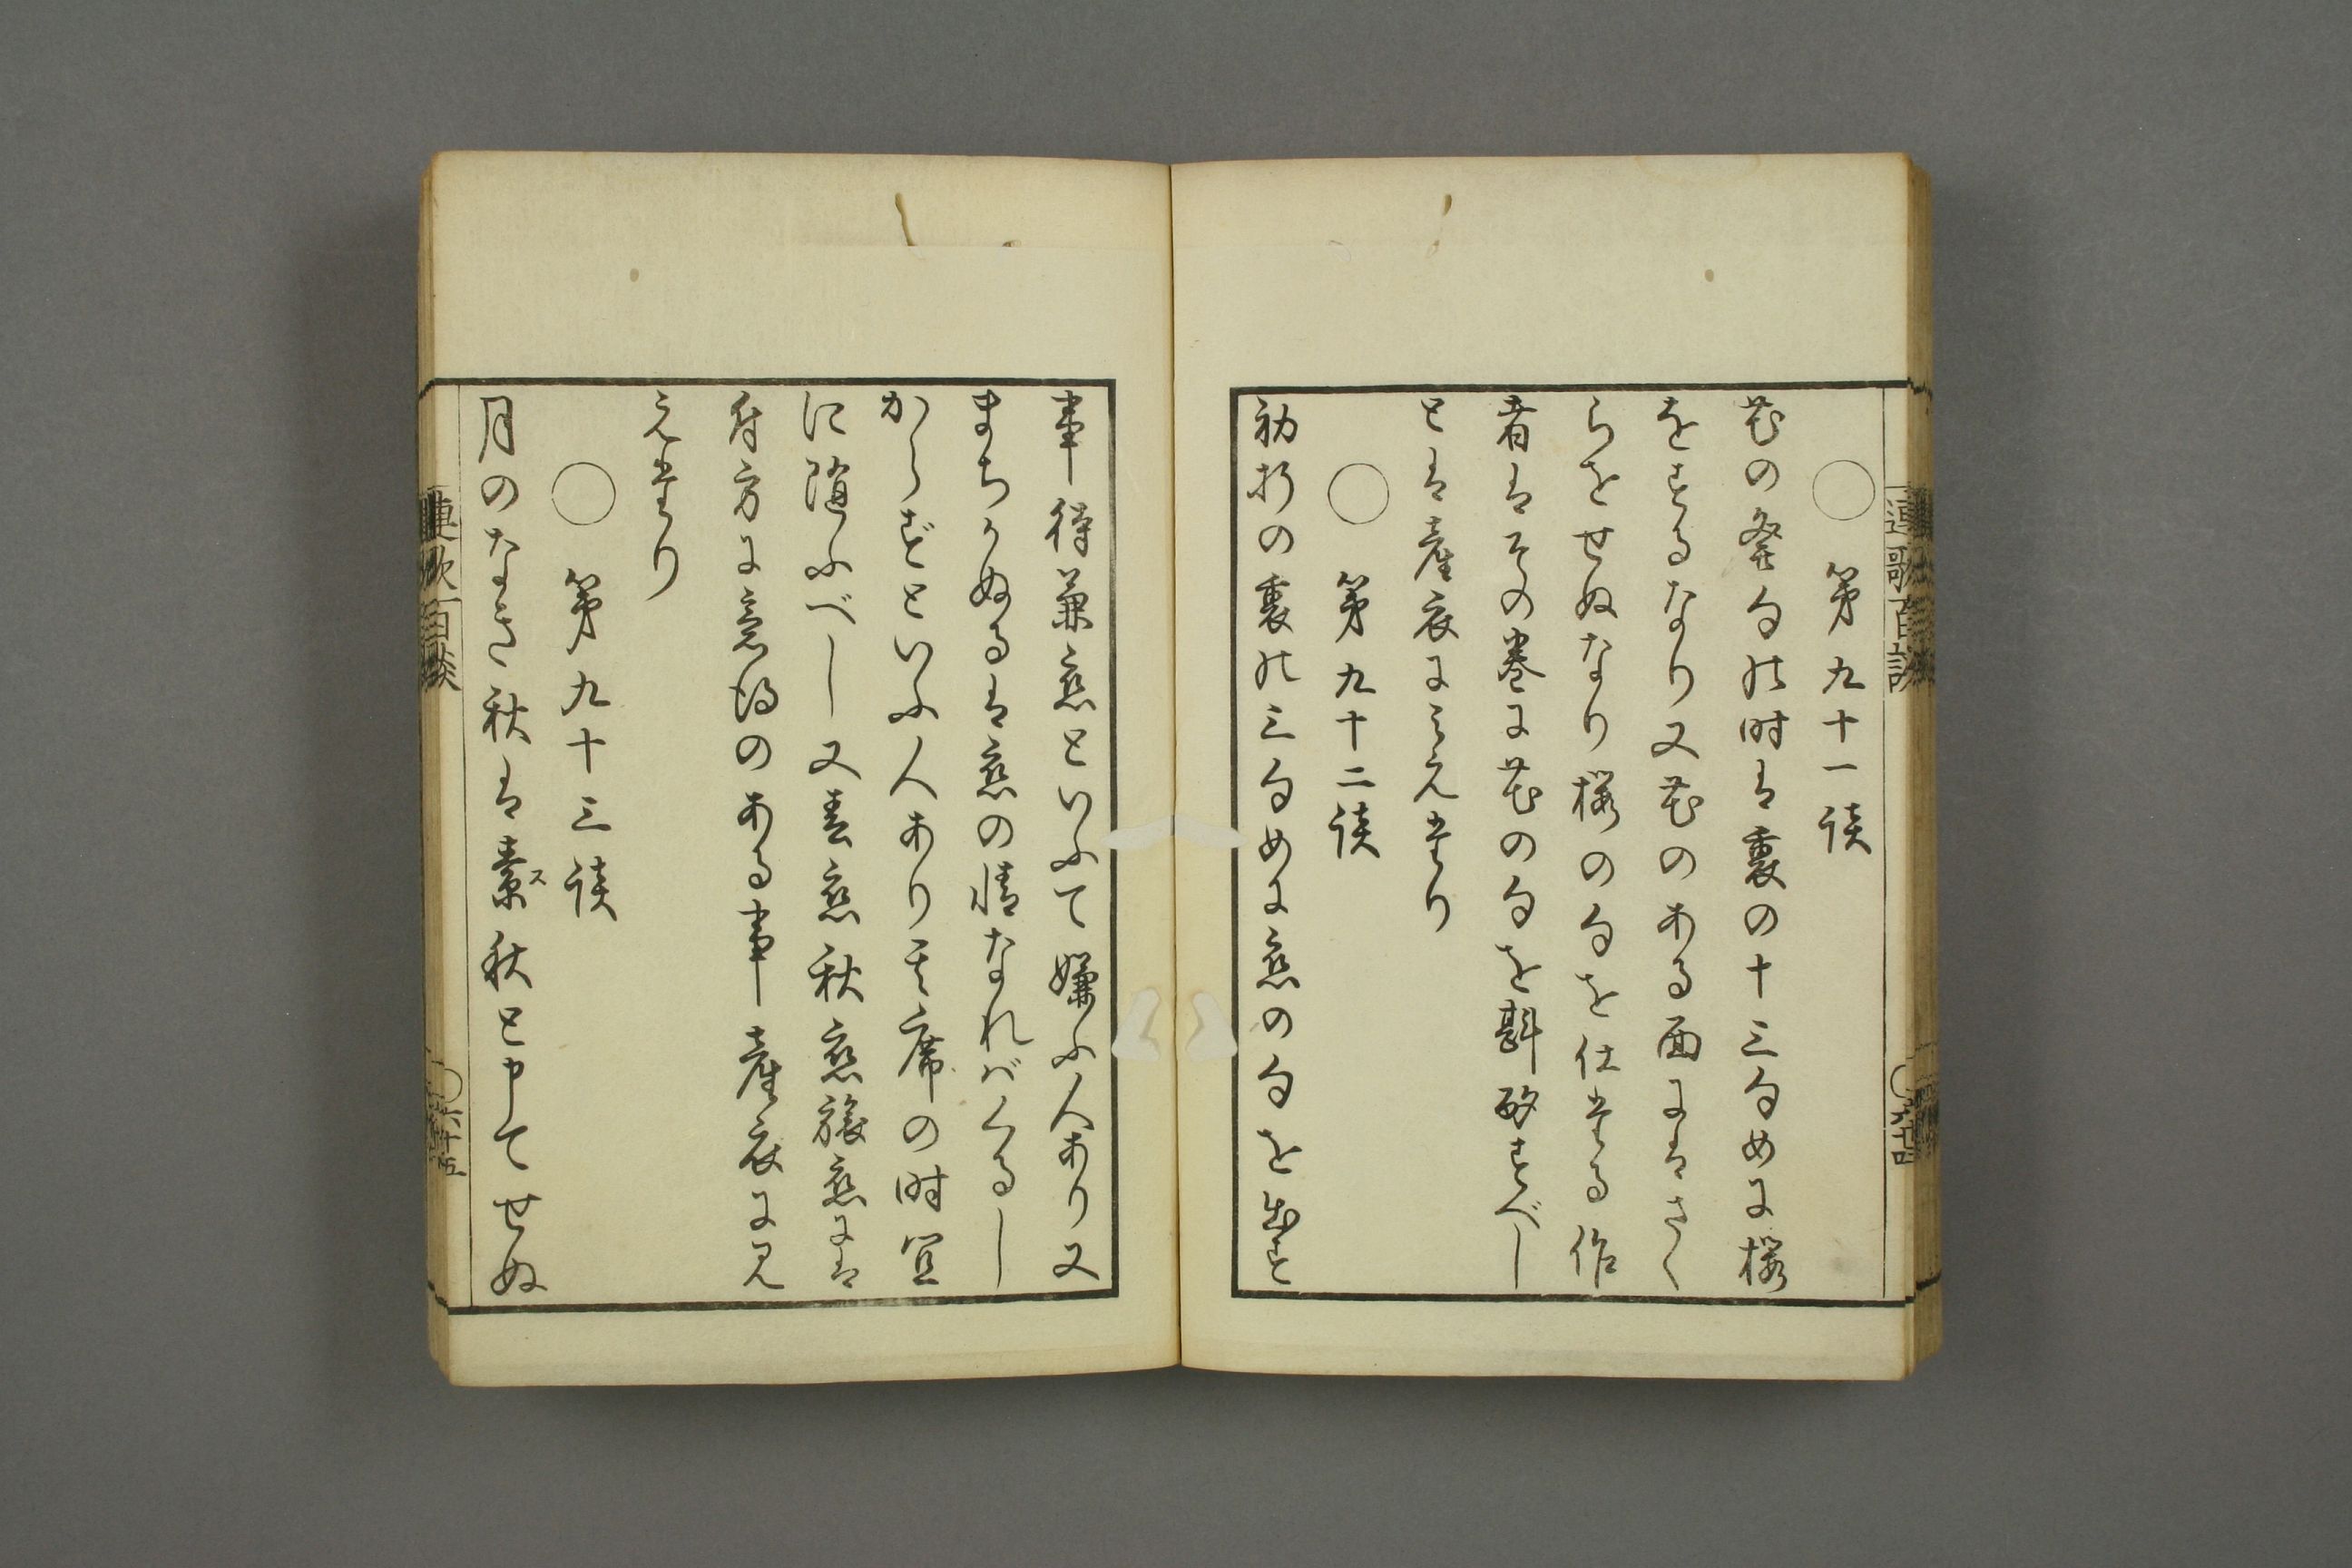 連歌百談
〇 第九十一談
花の発句の時は裏の十三句めに桜
をするなり又花のある面にはさく
らをせぬなり桜の句を仕たる作
者はその巻に花の句を斟酌すべし
とは産衣にみえたり
〇 第九十二談
初折の裏の三句めに恋の句を出す
〇六十四
事待兼恋といふて嫌ふ人あり又
まちかぬるは恋の情なればくるし
からずといふ人あり其席の時宜
に随ふべし又春恋秋恋旅恋には
付方に意得のある事産衣に見
えたり
〇 第九十三談
月のなき秋は素秋と申てせぬ
ス
連歌百談
〇六十五